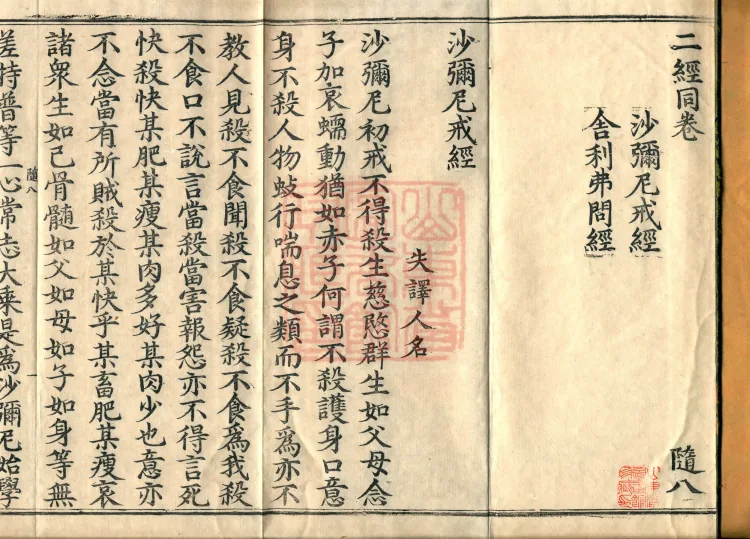 二經同卷 隨八
沙彌尼戒經
舍利弗問經
沙彌尼戒經
失譯人名
沙彌尼初戒不得殺生慈愍群生如父母念
子加哀蠕動猶如赤子何謂不殺護身口意
身不殺人物蚑行喘息之類而不手為亦不
教人見殺不食聞殺不食疑殺不食為我殺
不食口不說言當殺當害報怨亦不得言死
快殺快某肥某瘦某肉多好某肉少也意亦
不念當有所賊殺於某快乎某畜肥某瘦哀
諸衆生如己骨髓如父如母如子如身等無
隨八 一
差特普等一心常志大乘是為沙彌尼始學